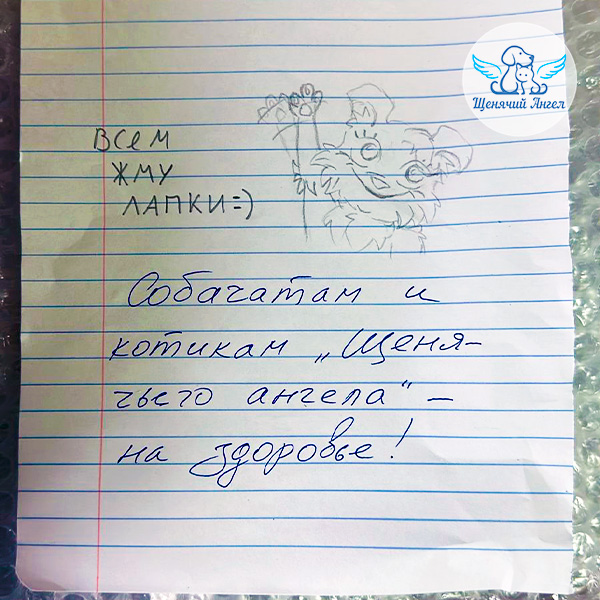 Щенячий Ангел
ВСЕМ
ЖМУ
ЛАПКИ=)
Собачатам и
котикам „Щеня-
чьего ангела" –
на здоровье!